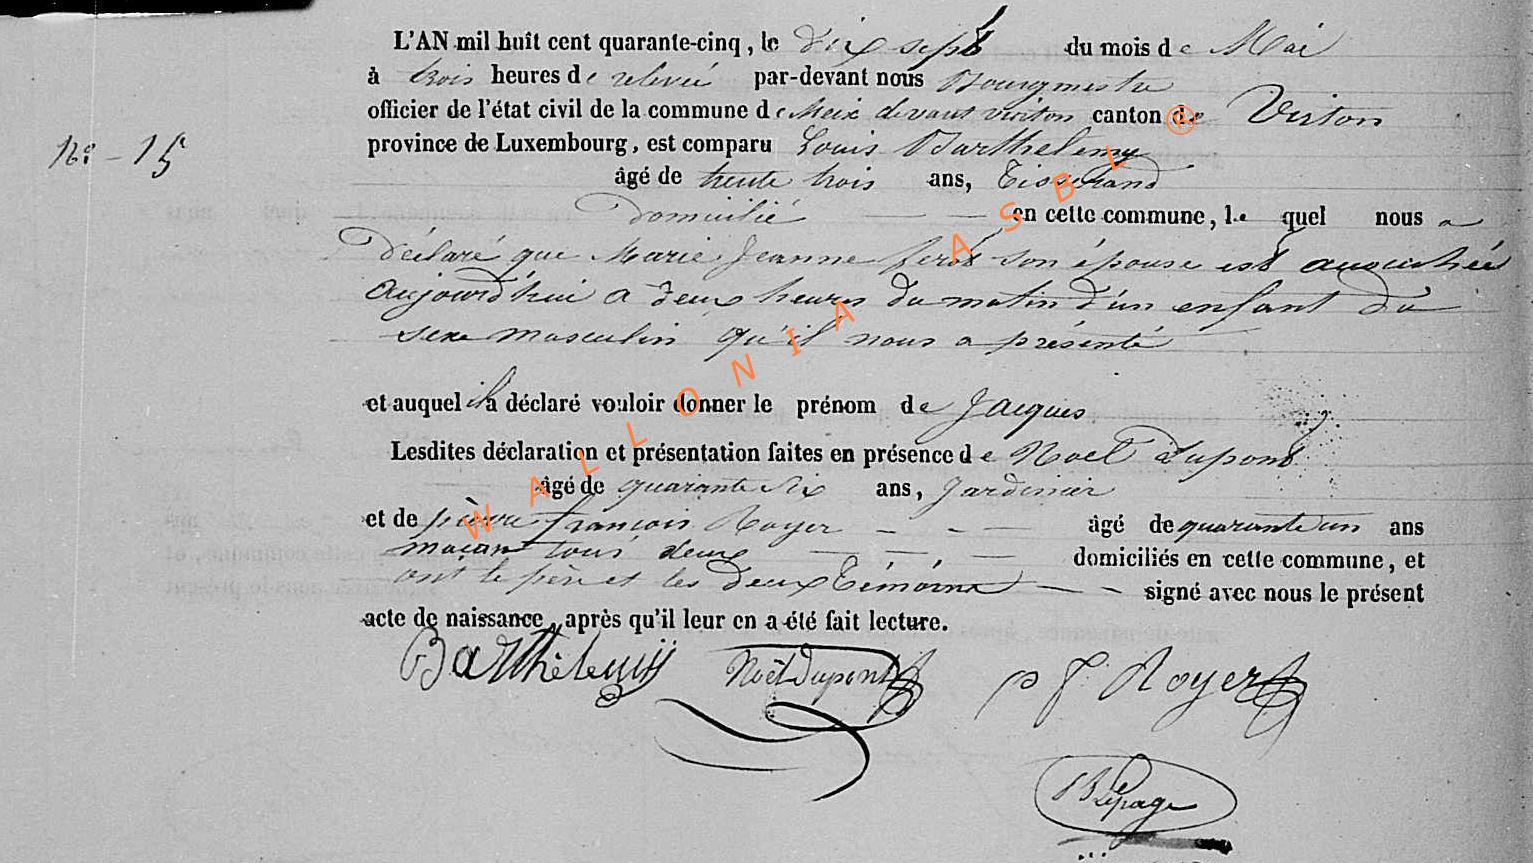 L'AN mil huit cent quarante-cinq, le dix sept du mois de Mai
à trois heures de relevée par-devant nous Bourgmestre
officier de l'état civil de la commune de Meix devant virton canton de Virton
province de Luxembourg, est comparu Louis Barthelemy
N° - 15
âgé de trente trois ans, Tisserand
Domicilié en cette commune, le quel nous a
Déclaré que Marie Jeanne son épouse est accouchée
aujourd'hui a deux heures du matin d'un enfant du
sexe masculin qu'il nous a présenté
et auquel il a déclaré vouloir donner le prénom de Jacques
Lesdites déclaration et présentation faites en présence de Noel Dupont
âgé de quarante six ans, Jardinier
et de pierre françois Royer âgé de quarante un ans
maçon tous deux domiciliés en cette commune, et
ont le père et les deux Témoins signé avec nous le présent
acte de naissance, après qu'il leur en a été fait lecture.
Barthélemÿ Noël Dupont p f Royer
Lepage
WALLONIA ASBL ®